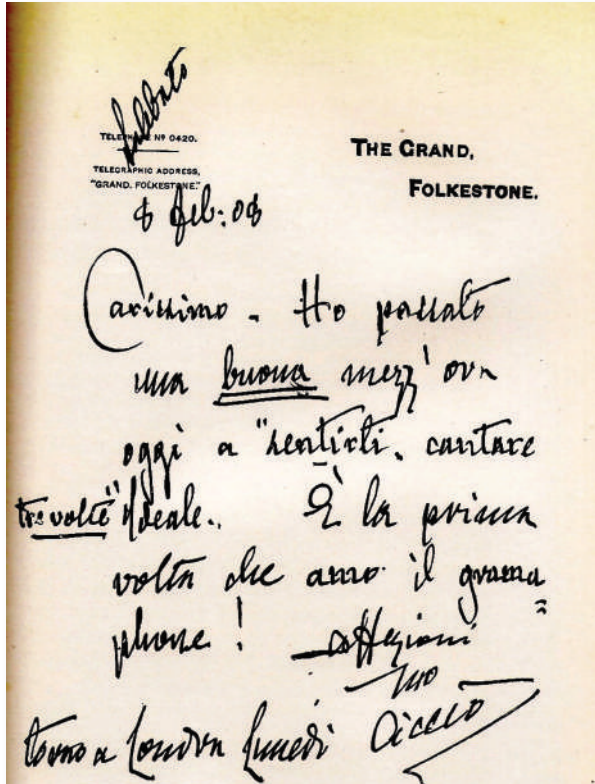 Sabbato
TELEPHONE Nº 0420.
TELEGRAPHIC ADDRESS,
"GRAND, FOLKESTONE."
THE GRAND,
FOLKESTONE.
8 feb: 08
Carissimo - Ho passato
una buona mezz'ora
oggi a "sentirti" cantare
tre volte "Ideale". È la prima
volta che amo il grama=
phone! Affezioni
tuo
Ciccio
torno a Londra Lunedi